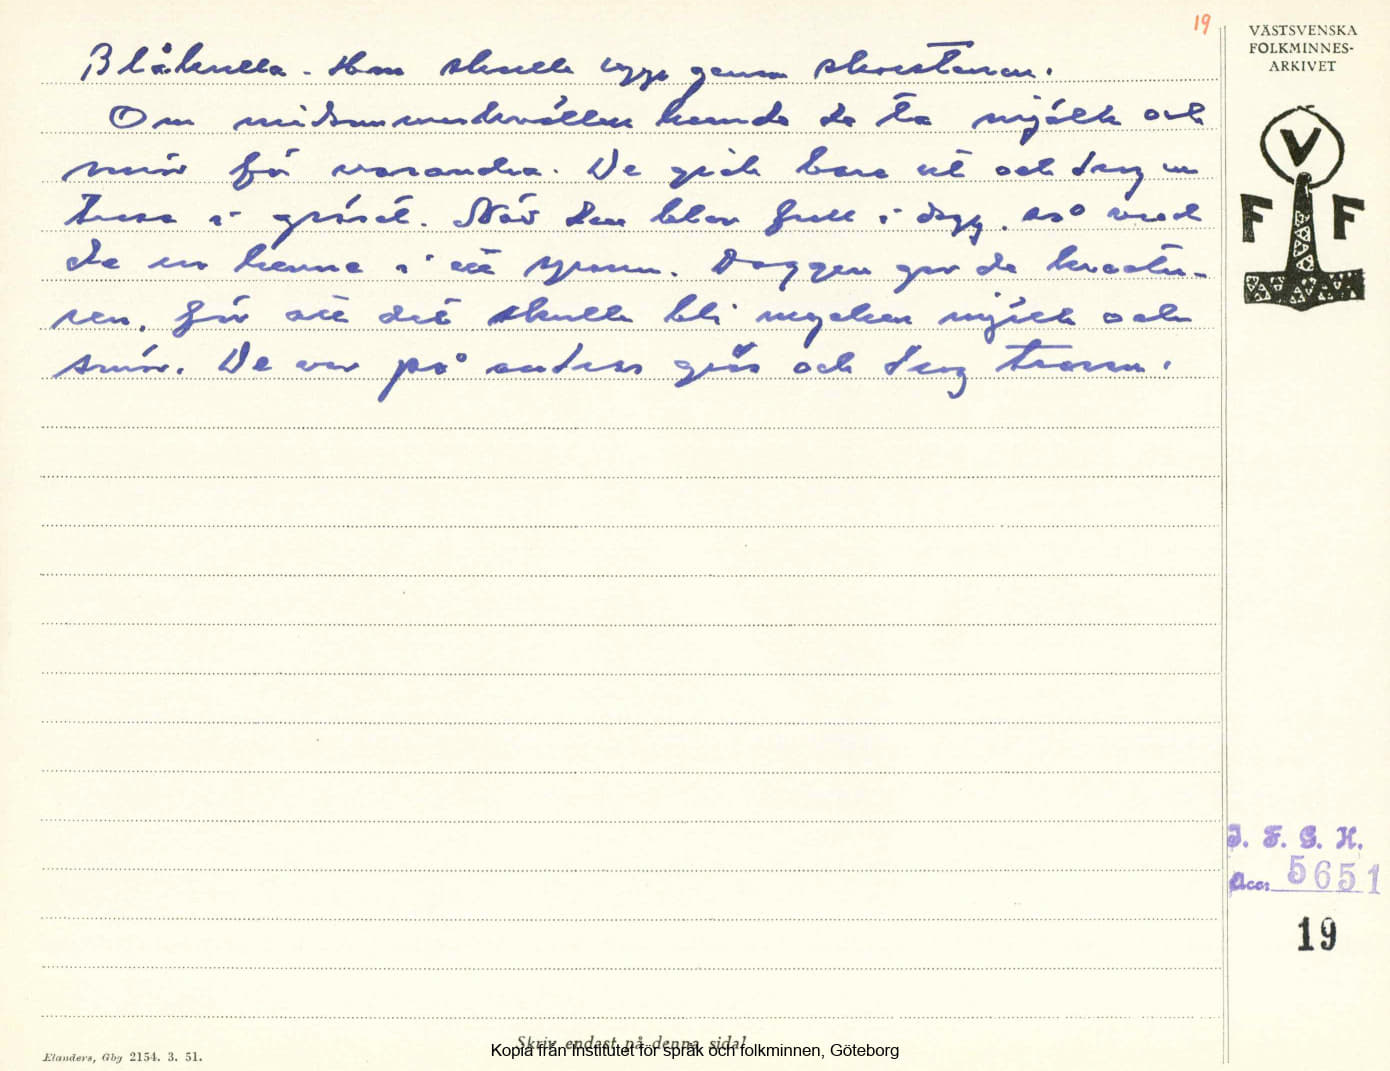 19
VÄSTSVENSKA
FOLKMINNES-
ARKIVET
Blåkulla. Hon skulle upp genom skorstenen.
Om midsommarkvällen kunde de ta mjölk och
smör för varandra. De gick bara ut och drog en
trasa i gräset. När den blev full i dagg, så vred
de ur henne i ett spann. Daggen gav de kreatu-
ren, för att det skulle bli mycken mjölk och
smör. De var på andras gräs och drog trasan.
V
F F
I. F. G. H.
Acc: 5651
19
Skriv endast på denna sida!
Kopia från Institutet för språk och folkminnen, Göteborg
Elanders, Gbg 2154. 3. 51.